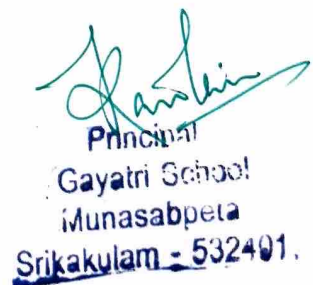 Principal
Gayatri School
Munasabpeta
Srikakulam - 532401.